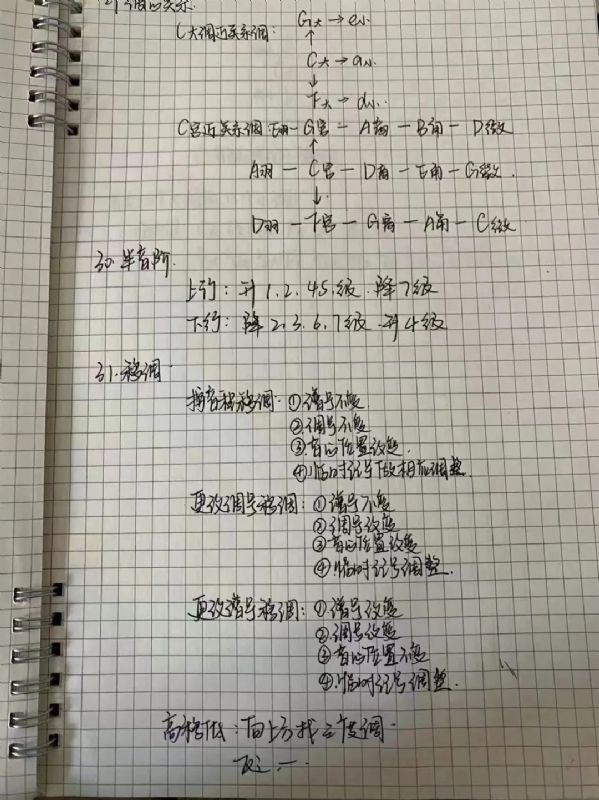 调的关系
C大调近关系调: G大→e小.
↑
C大→a小.
↓
F大→d小.
C宫近关系调:E羽—G宫—A商—B角—D徵
↑
A羽—C宫—D商—E角—G徵.
↓
D羽—F宫—G商—A角—C徵
30.半音阶.
上行:升1.2.4.5.级.降7级
下行:降2.3.6.7级.升4级
31.移调.
按音程移调:①谱号不变.
②调号不变
③音的位置改变.
④临时记号做相应调整.
更改调号移调:①谱号不变
②调号改变
③音的位置改变
④.临时记号调整.
更改谱号移调:①谱号改变
②调号改变
③音的位置不变
④.临时记号调整.
高移低:向上方找三度调.